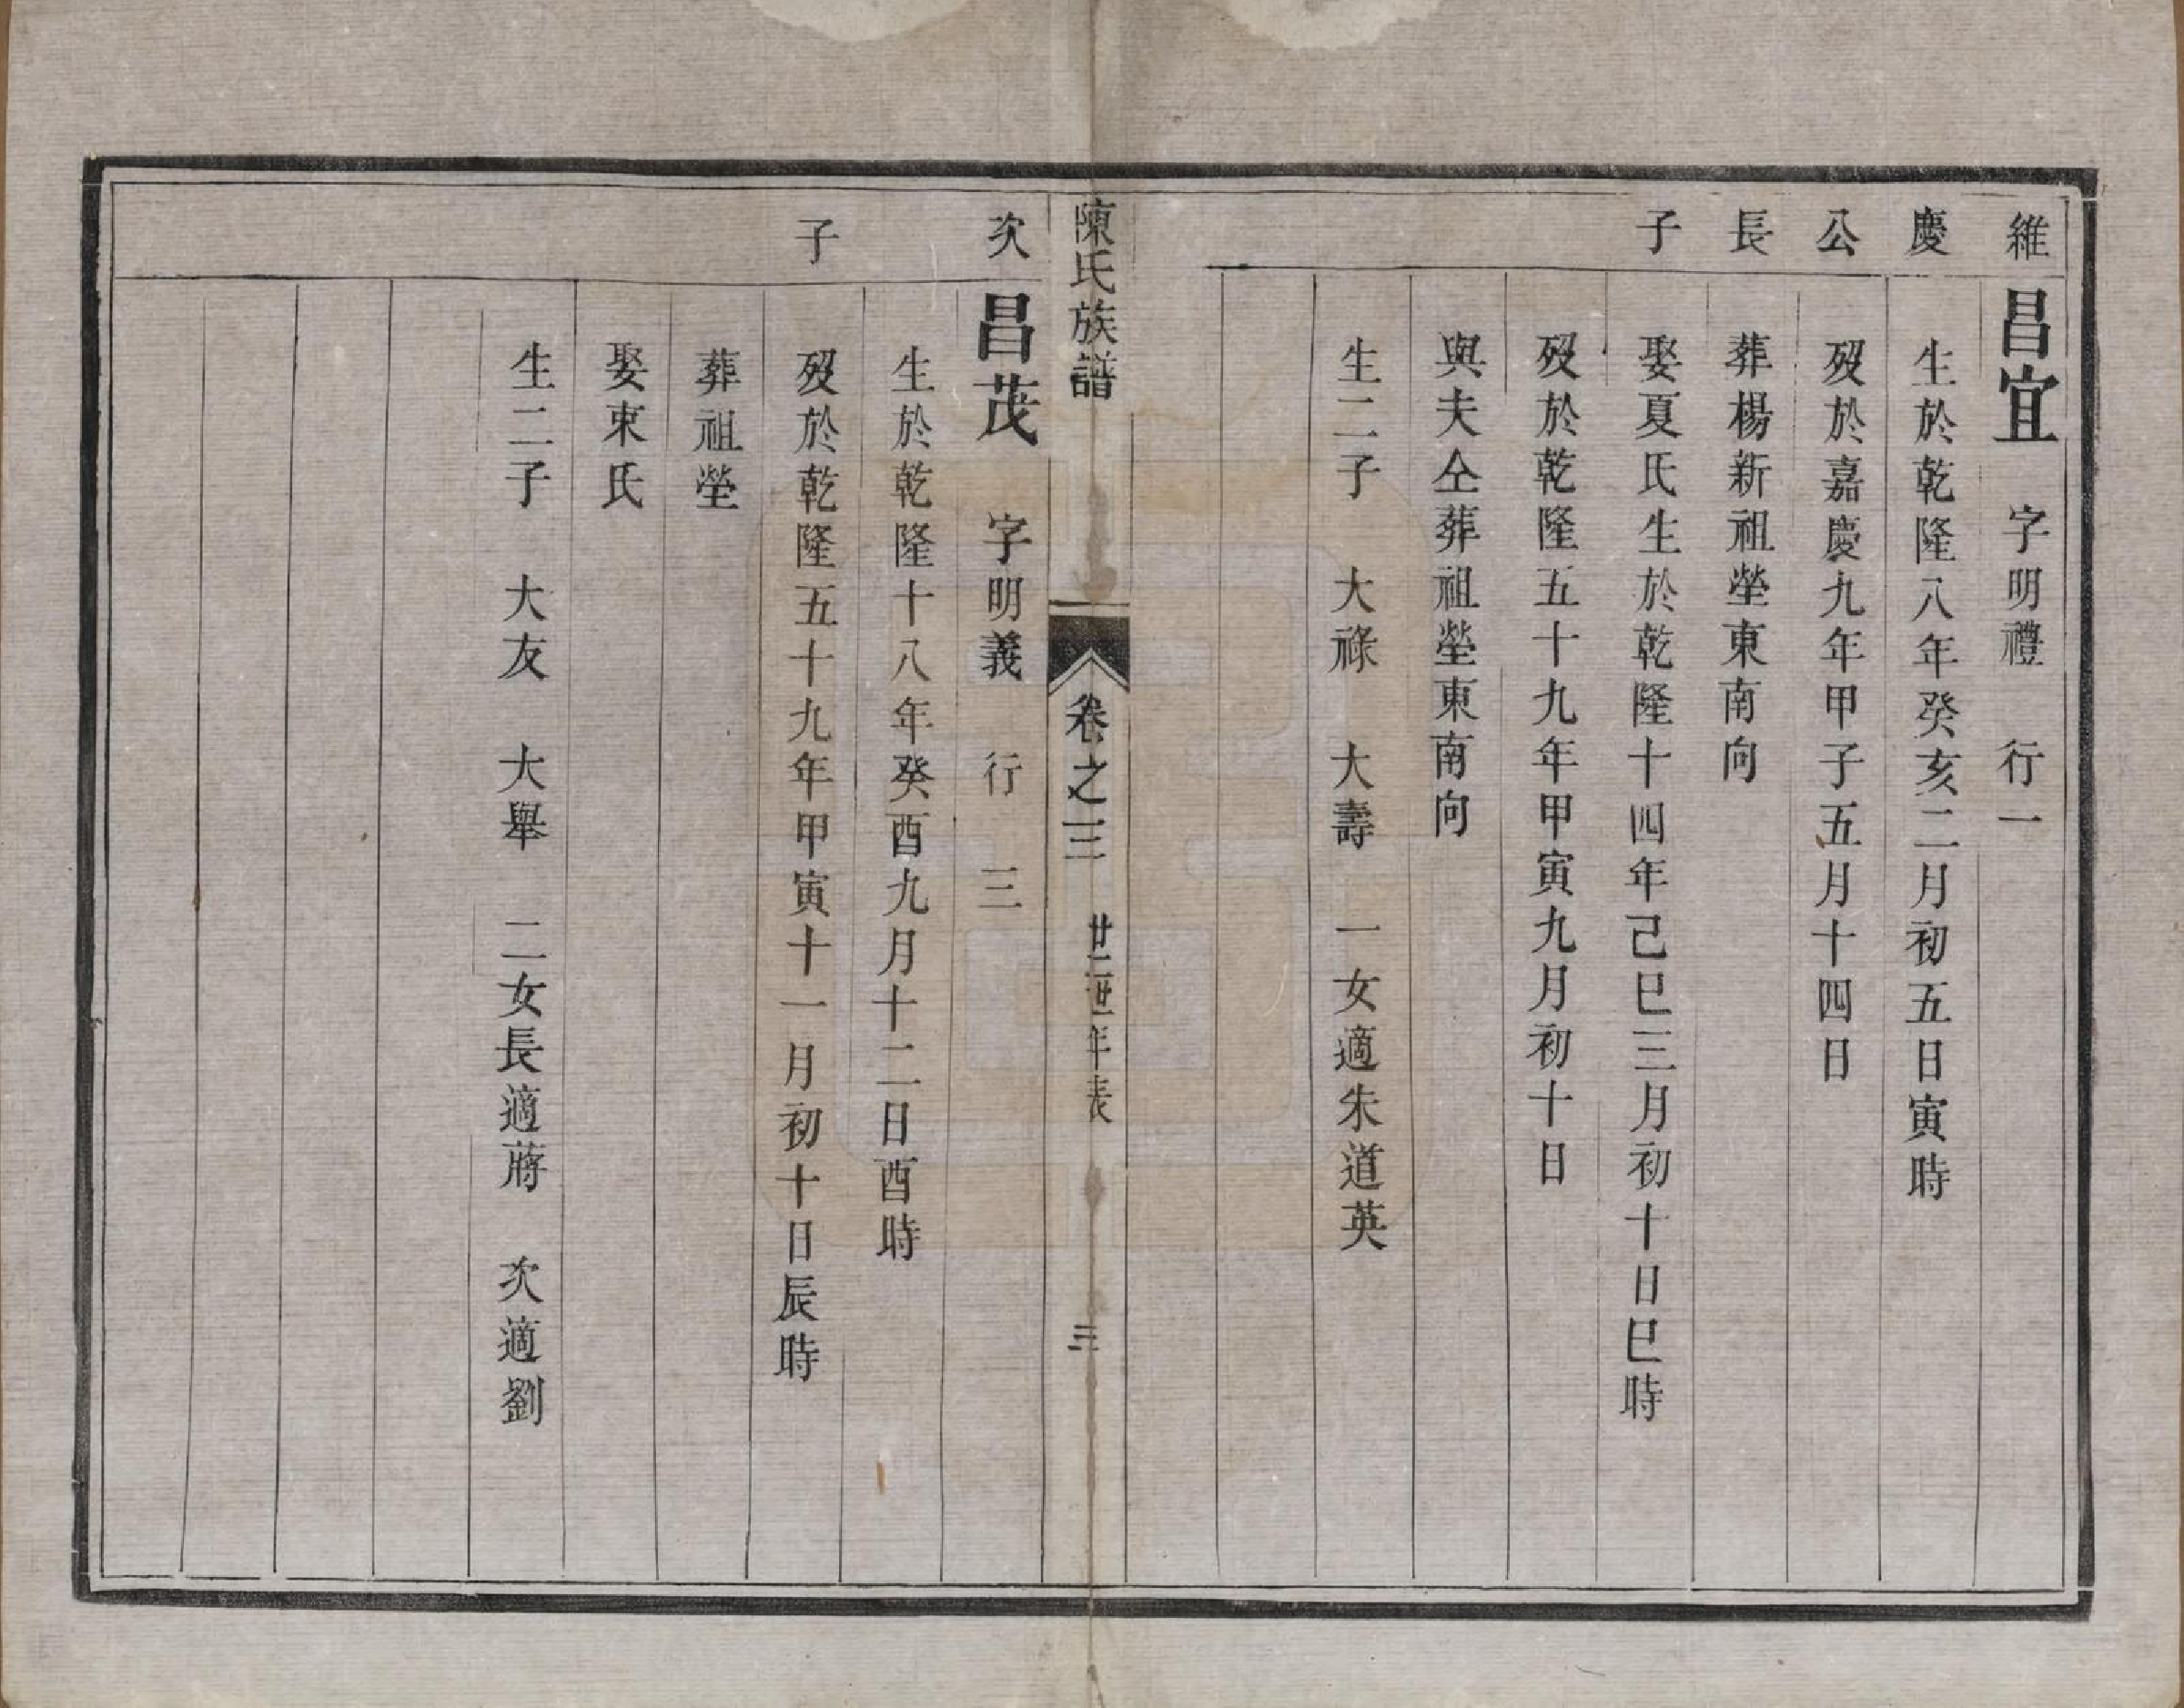 維慶公長子
昌宜　字明禮　行一
生於乾隆八年癸亥二月初五日寅時
歿於嘉慶九年甲子五月十四日
葬楊新祖塋東南向
娶夏氏生於乾隆十四年己巳三月初十日巳時
歿於乾隆五十九年甲寅九月初十日
與夫仝葬祖塋東南向
生二子　大祿　大壽　一女適朱道英
陳氏族譜　卷之三　廿二世年表　三
次子
昌茂　字明義　行　三
生於乾隆十八年癸酉九月十二日酉時
歿於乾隆五十九年甲寅十一月初十日辰時
葬祖塋
娶東氏
生二子　大友　大舉　二女長適蔣　次適劉